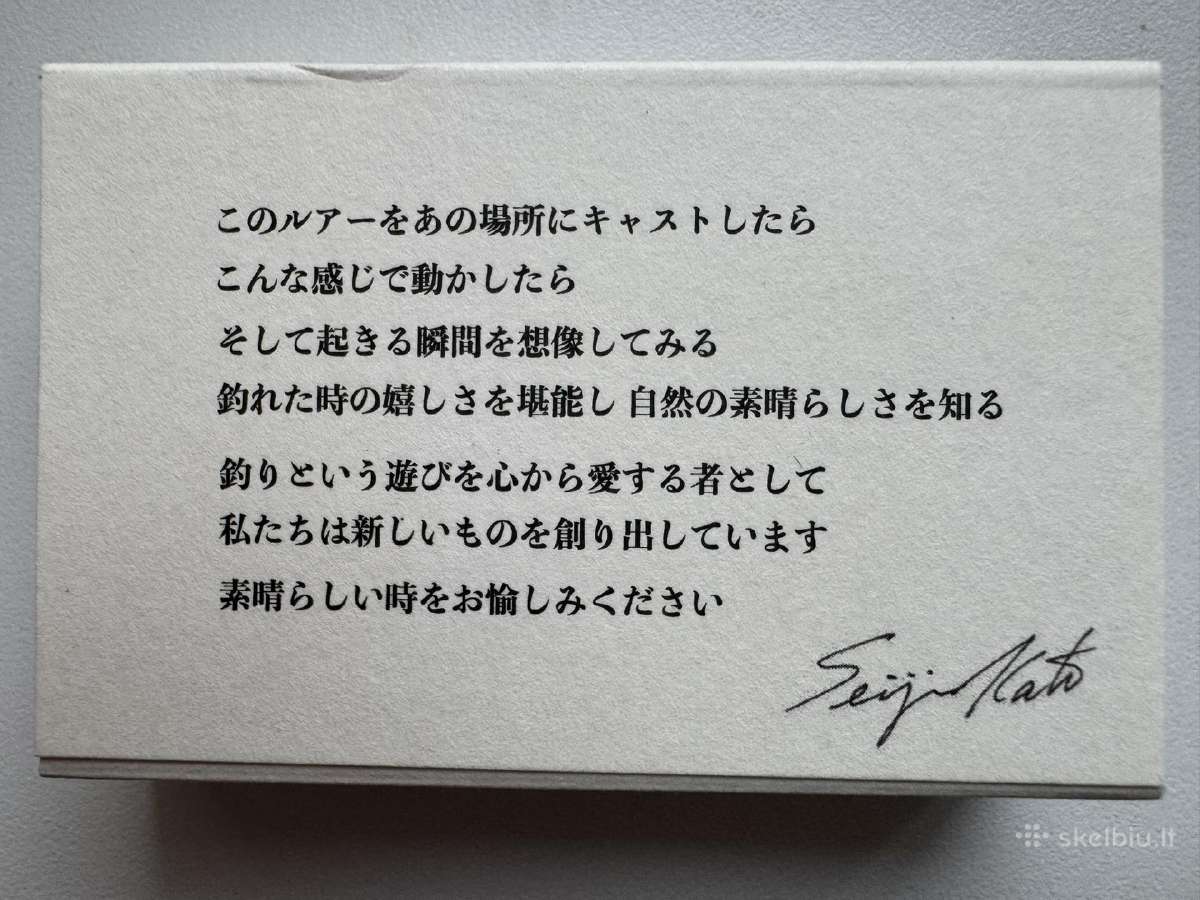 このルアーをあの場所にキャストしたら
こんな感じで動かしたら
そして起きる瞬間を想像してみる
釣れた時の嬉しさを堪能し 自然の素晴らしさを知る
釣りという遊びを心から愛する者として
私たちは新しいものを創り出しています
素晴らしい時をお愉しみください
Seiji Kato
skelbiu.lt